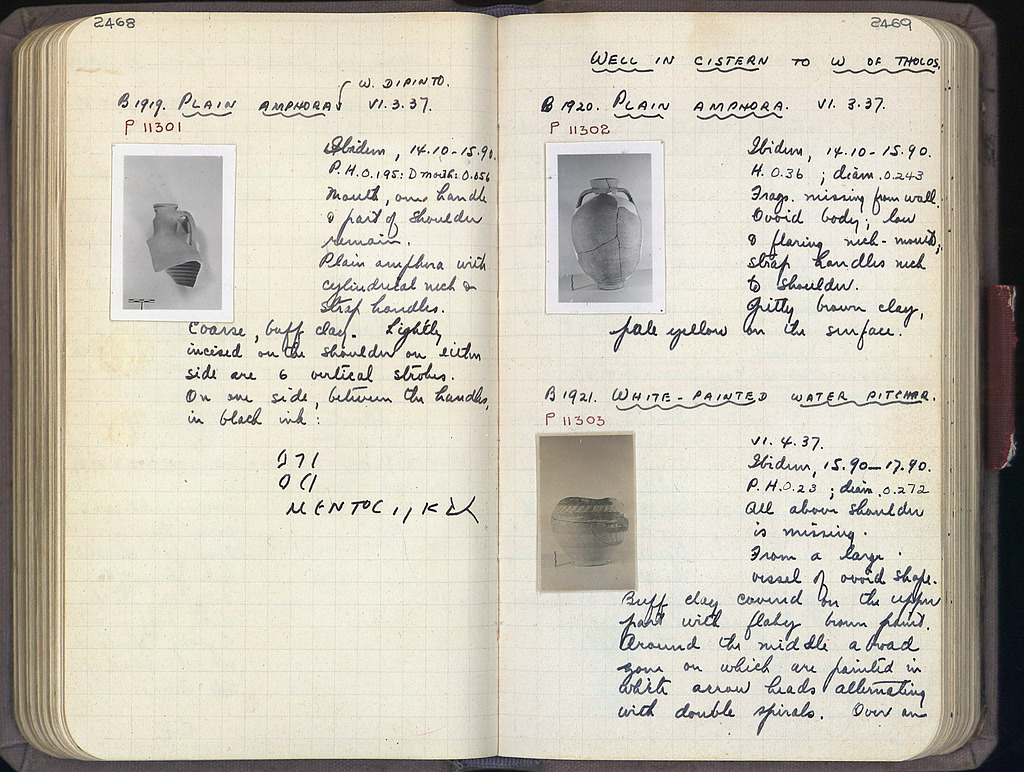 2468
W. DIPINTO.
B 1919. PLAIN AMPHORA VI.3.37.
P 11301
Ibidem, 14.10-15.90.
P.H.0.195: D mouth: 0.056
Mouth, one handle
& part of shoulder
remain.
Plain amphora with
cylindrical neck &
strap handles.
Coarse, buff clay. Lightly
incised on the shoulder on either
side are 6 vertical strokes.
On one side, between the handles,
in black ink:
2469
WELL IN CISTERN TO W OF THOLOS.
B 1920. PLAIN AMPHORA. VI. 3.37.
P 11302
Ibidem, 14.10-15.90.
H. 0.36 ; diam. 0.243
Frags. missing from wall.
Ovoid body; low
& flaring neck-mouth;
strap handles neck
to shoulder.
Gritty brown clay,
pale yellow on the surface.
B 1921. WHITE-PAINTED WATER PITCHER.
P 11303
VI. 4.37.
Ibidem, 15.90-17.90.
P.H.0.23 ; diam. 0.272
All above shoulder
is missing.
From a large
vessel of ovoid shape.
Buff clay covered on the upper
part with flaky brown paint.
Around the middle a broad
zone on which are painted in
white arrow heads alternating
with double spirals. Over an